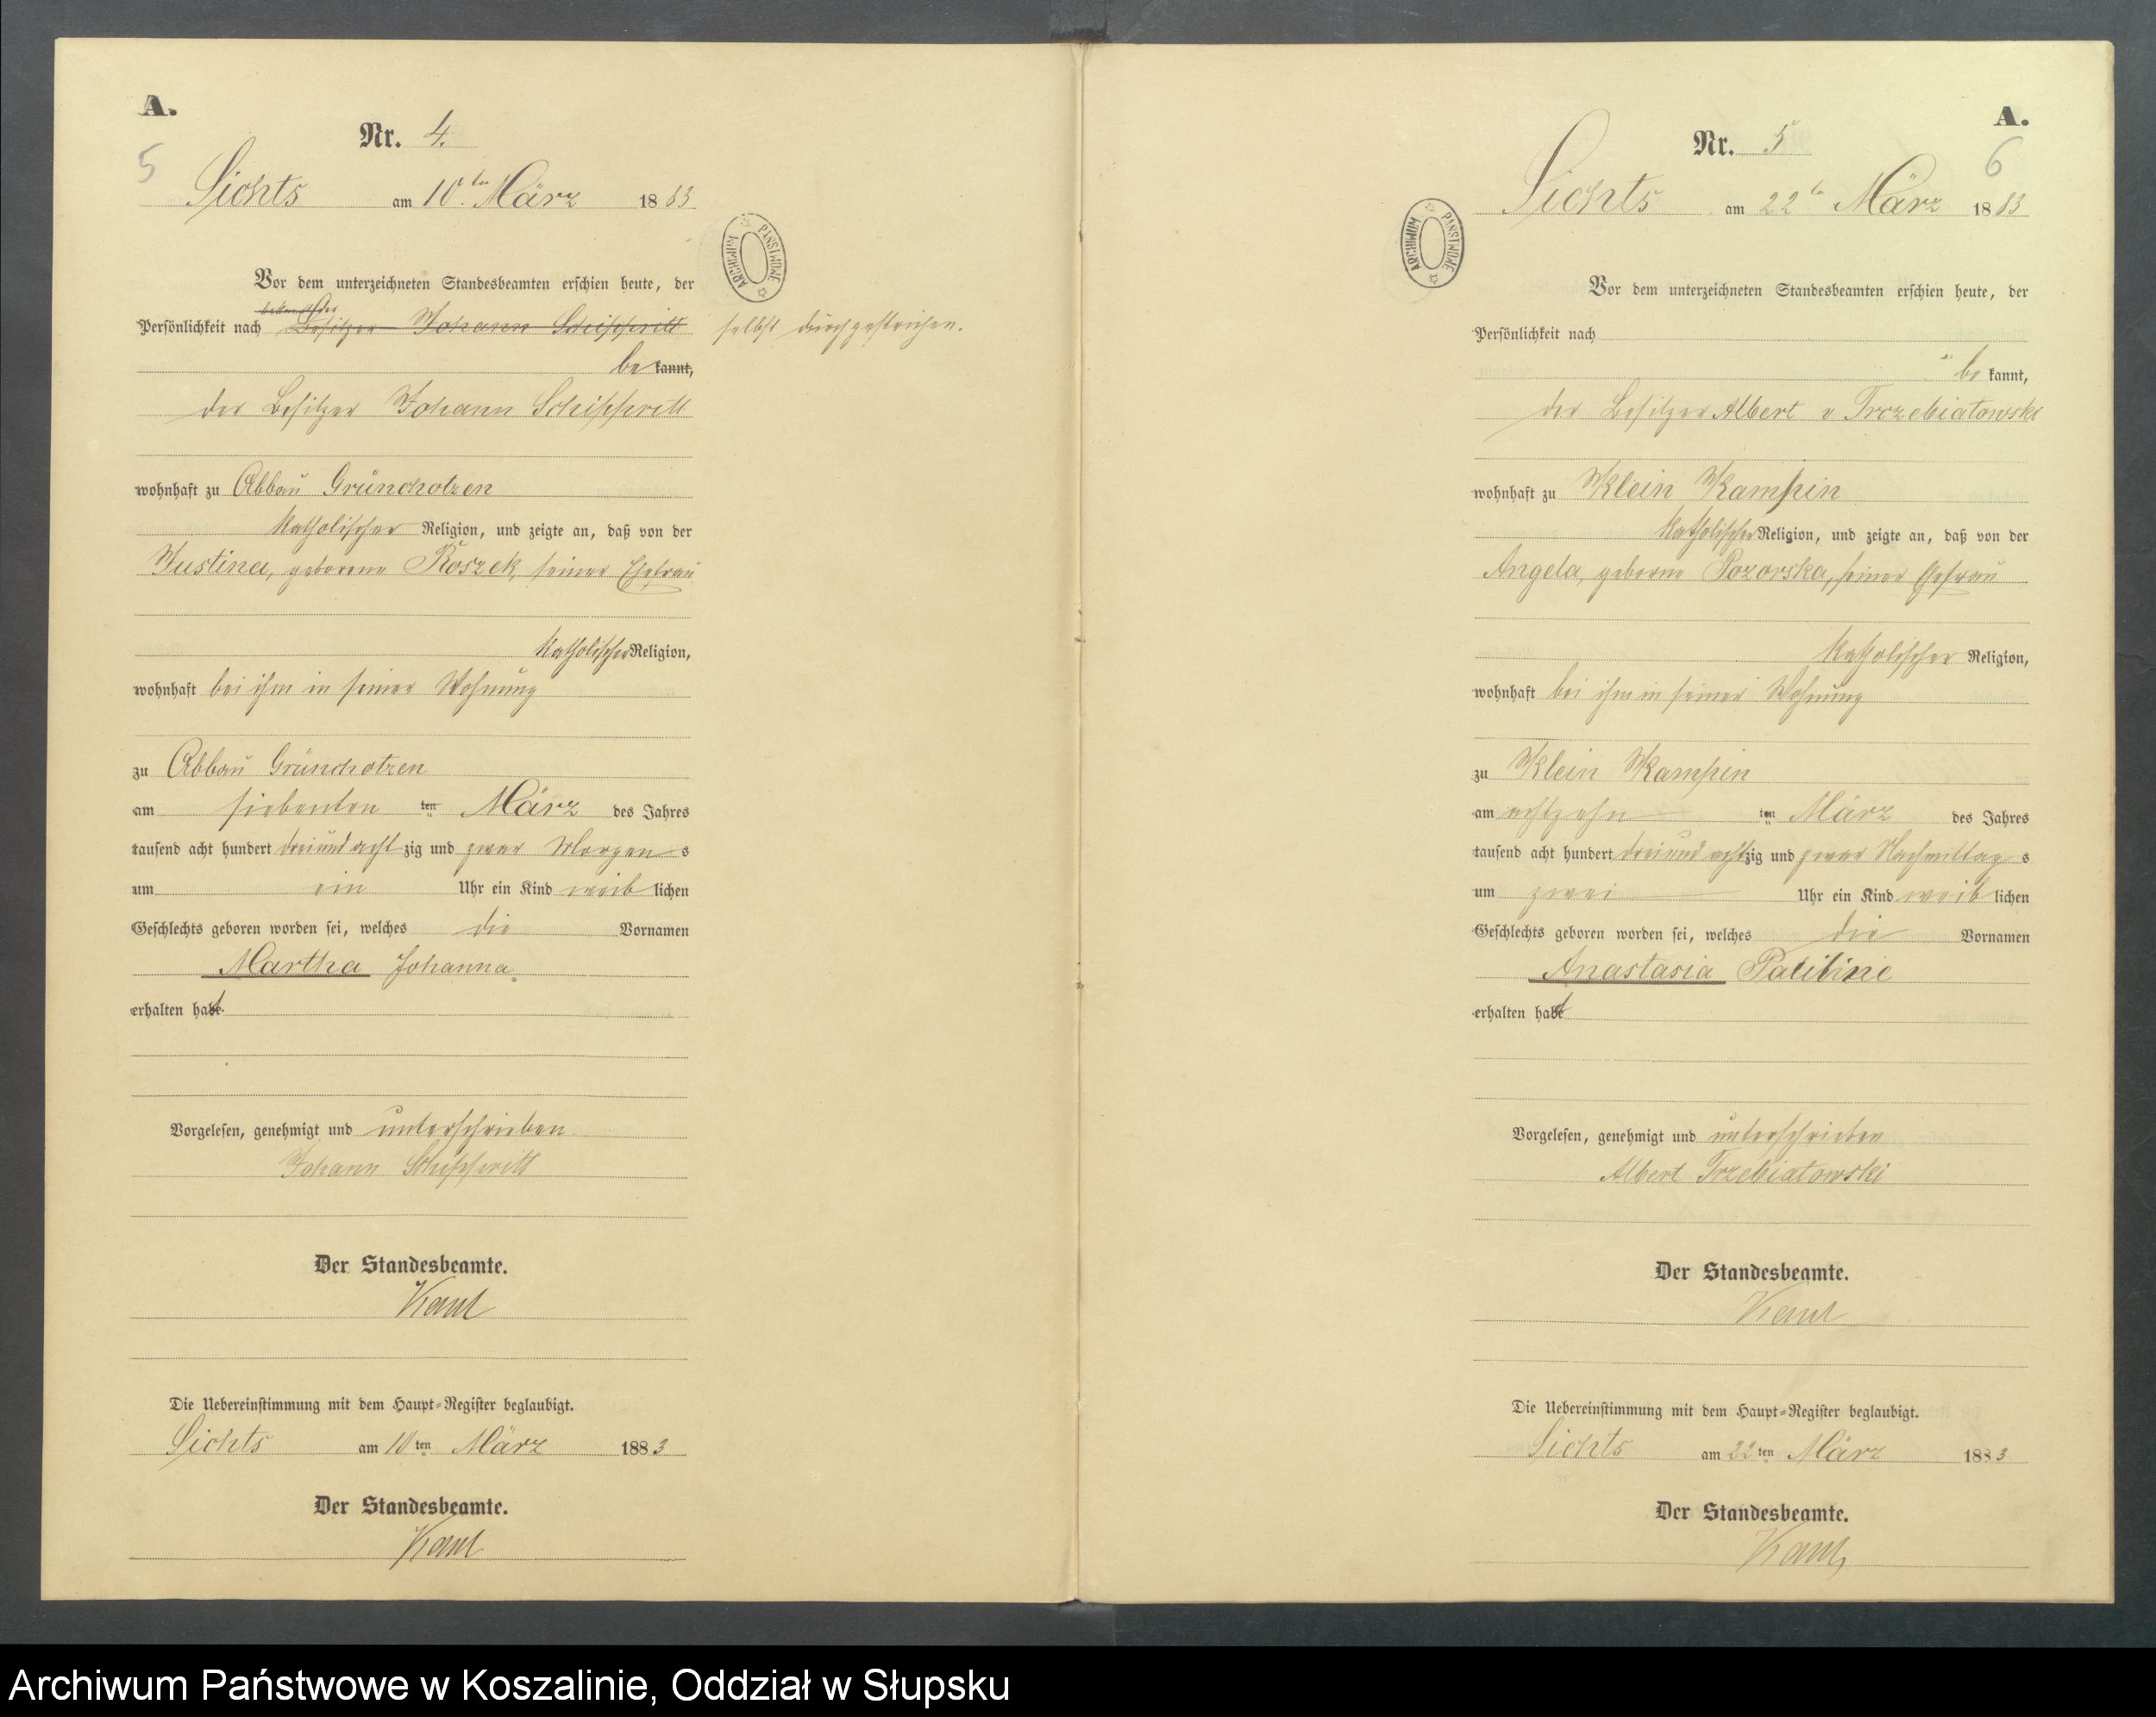 A.
Nr. 4.
5
Lichts am 10ten März 1883
Vor dem unterzeichneten Standesbeamten erschien heute, der
Persönlichkeit nach Besitzer Johann selbst durchgestrichen.
be kannt,
der Besitzer Johann
wohnhaft zu Abbau Grünchotzen
Katholischer Religion, und zeigte an, daß von der
Justina, geborene Roszek, seiner Ehefrau
Katholischer Religion,
wohnhaft bei ihm in seiner Wohnung
zu Abbau Grünchotzen
am siebenten ten März des Jahres
tausend acht hundert dreiundachtzig und zwar Morgens
um ein Uhr ein Kind weiblichen
Geschlechts geboren worden sei, welches die Vornamen
Martha Johanna
erhalten hat
Vorgelesen, genehmigt und unterschrieben
Johann
Der Standesbeamte.
Die Uebereinstimmung mit dem Haupt-Register beglaubigt.
Lichts am 10ten März 1883
Der Standesbeamte.
A.
Nr. 5
6
Lichts am 22ten März 1883
ARCHIWUM PAŃSTWOWE
Vor dem unterzeichneten Standesbeamten erschien heute, der
Persönlichkeit nach
be kannt,
der Besitzer Albert v Trzebiatowski
wohnhaft zu Klein Kampin
Katholischer Religion, und zeigte an, daß von der
Angela, geborne Pozorska, seiner Ehefrau
Katholischer Religion,
wohnhaft bei ihm in seiner Wohnung
zu Klein Kampin
am achtzehn ten März des Jahres
tausend acht hundert dreiundachtzig und zwar Nachmittags
um zwei Uhr ein Kind weiblichen
Geschlechts geboren worden sei, welches die Vornamen
Anastasia
erhalten hat
Vorgelesen, genehmigt und unterschrieben
Albert Trzebiatowski
Der Standesbeamte.
Die Uebereinstimmung mit dem Haupt-Register beglaubigt.
Lichts am 22ten März 1883
Der Standesbeamte.
Archiwum Państwowe w Koszalinie, Oddział w Słupsku